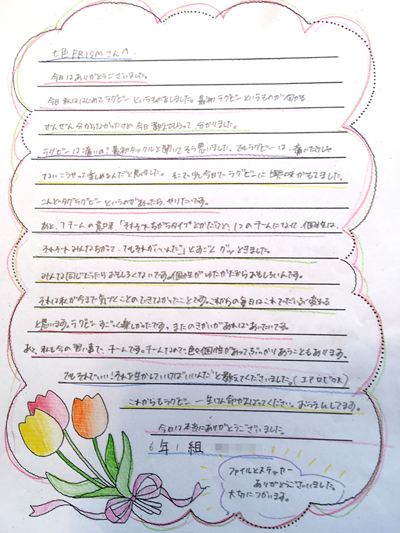 七色PRISMさんへ
今日はありがとうございました。
今日私ははじめてラグビーというものをしました。最初ラグビーというものが何かも
ぜんぜん分からなかったけど今日教えてもらって分かりました。
ラグビーは痛いの?最初タックルと聞いてそう思いました。でもラグビーは、痛いだけじゃ
なくこうやって楽しめるんだと思いました。そして少し今日でラグビーに興味がもてました。
こんどタグラグビーというのがあったら、やりたいです。
あと、
それぞれみんなちがって、でもそれがいいんだ」とすごくグッときました。
みんな同じだったらおもしろくないです。個性がゆたかだからおもしろいんです。
それは私が今まで気づくことのできなかったことです。これからの毎日はこれでだいぶ変わる
と思います。ラグビーすごく楽しかったです。またのきかいがあればあいたいです。
あと、私も今の習い事で、チームです。チームなので、色々個性があってぶつかりあうこともあります。
でもそれでいい!それを生かしていけばいいんだ」と教えてくださいました。(エアロビOK)
これからもラグビー一生けん命がんばってください。おうえんしてます。
今日は本当にありがとうございました。
6年1組
ファイルとステッカー
ありがとうございました。
大切につかいます。